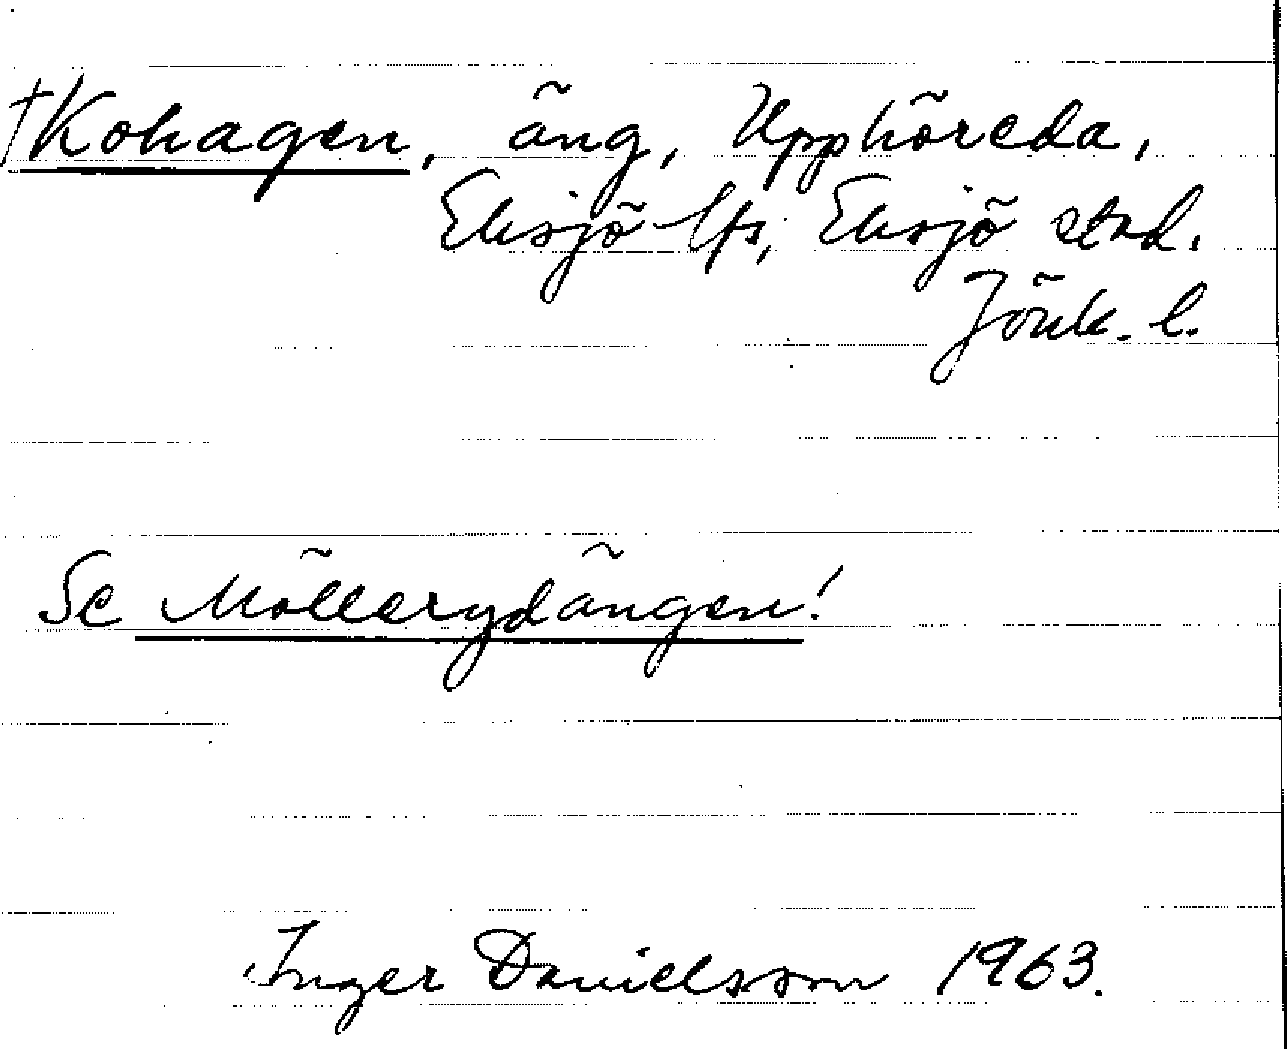 †Kohagen, äng, Upphöreda,
Eksjö lfs, Eksjö stad.
Jönk. l.
Se Möllerydängen!
Inger Danielsson 1963.